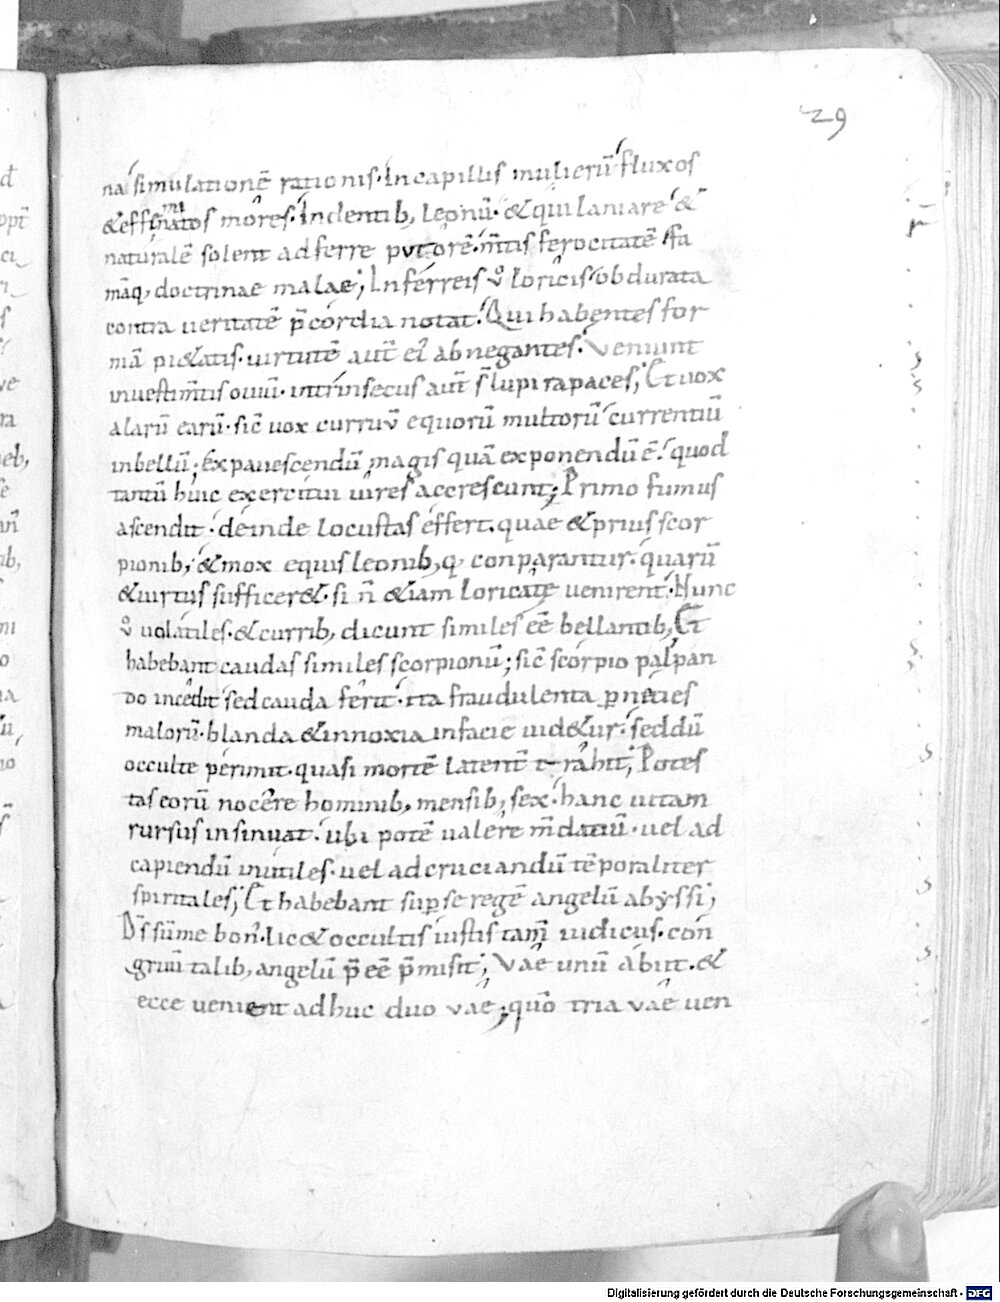 29
na simulationē rationis. In capillis mulierū fluxos
&effinatos mores. In dentib; leonū. & qui laniare &
naturalē solent adferre putorē. mtis ferocitatē
māq; doctrinae malae; In ferreis v̊ loricis obdurata
contra ueritatē p̄cordia notat. Qui habentes for
mā pi&atis. uirtutē aut̄ ei' abnegantes. Veniunt
inuestim̄tis ouiū. intrinsecus aut̄ s̄ lupi rapaces; Et uox
alarū earū. sic̄ uox curruū equorū multorū currentiū
inbellū; Expauescendū magis quā exponendū ē. quod
tantū huic exercitui uires accrescunt; Primo fumus
ascendit. deinde locustas effert. quae & prius scor
pionib; & mox equis leonib;q; conparantur. quarū
&uirtus suffícer&. si n̄ &iam loricatę uenirent. Nunc
v̊ uolatiles. & currib; dicunt similes eē bellantib; Et
habebant caudas similes scorpionū; sic̄ scorpio palpan
do incedit sed cauda ferit. ita fraudulenta p̱nicies
malorū. blanda & innoxia infacie uid&ur. sed dū
occulte perimit. quasi mortē latent̄ trahit; Potes
tas eorū nocere hominib; mensib; sex. hanc uitam
rursus insinuat. ubi potē ualere m̄daciū. uel ad
capiendū inutiles. uel ad cruciandū tēporaliter
spiritales; Et habebant sup̱ se regē angelū abyssi;
D̄s sūme bon'. lic& occultis iustis tam̄ iudiciis. con
gruū talib; angelū p̄eē p̄misit; Vae unū abiit. &
ecce uenient adhuc duo vae; quō tria vae uen
Digitalisierung gefördert durch die Deutsche Forschungsgemeinschaft - DFG